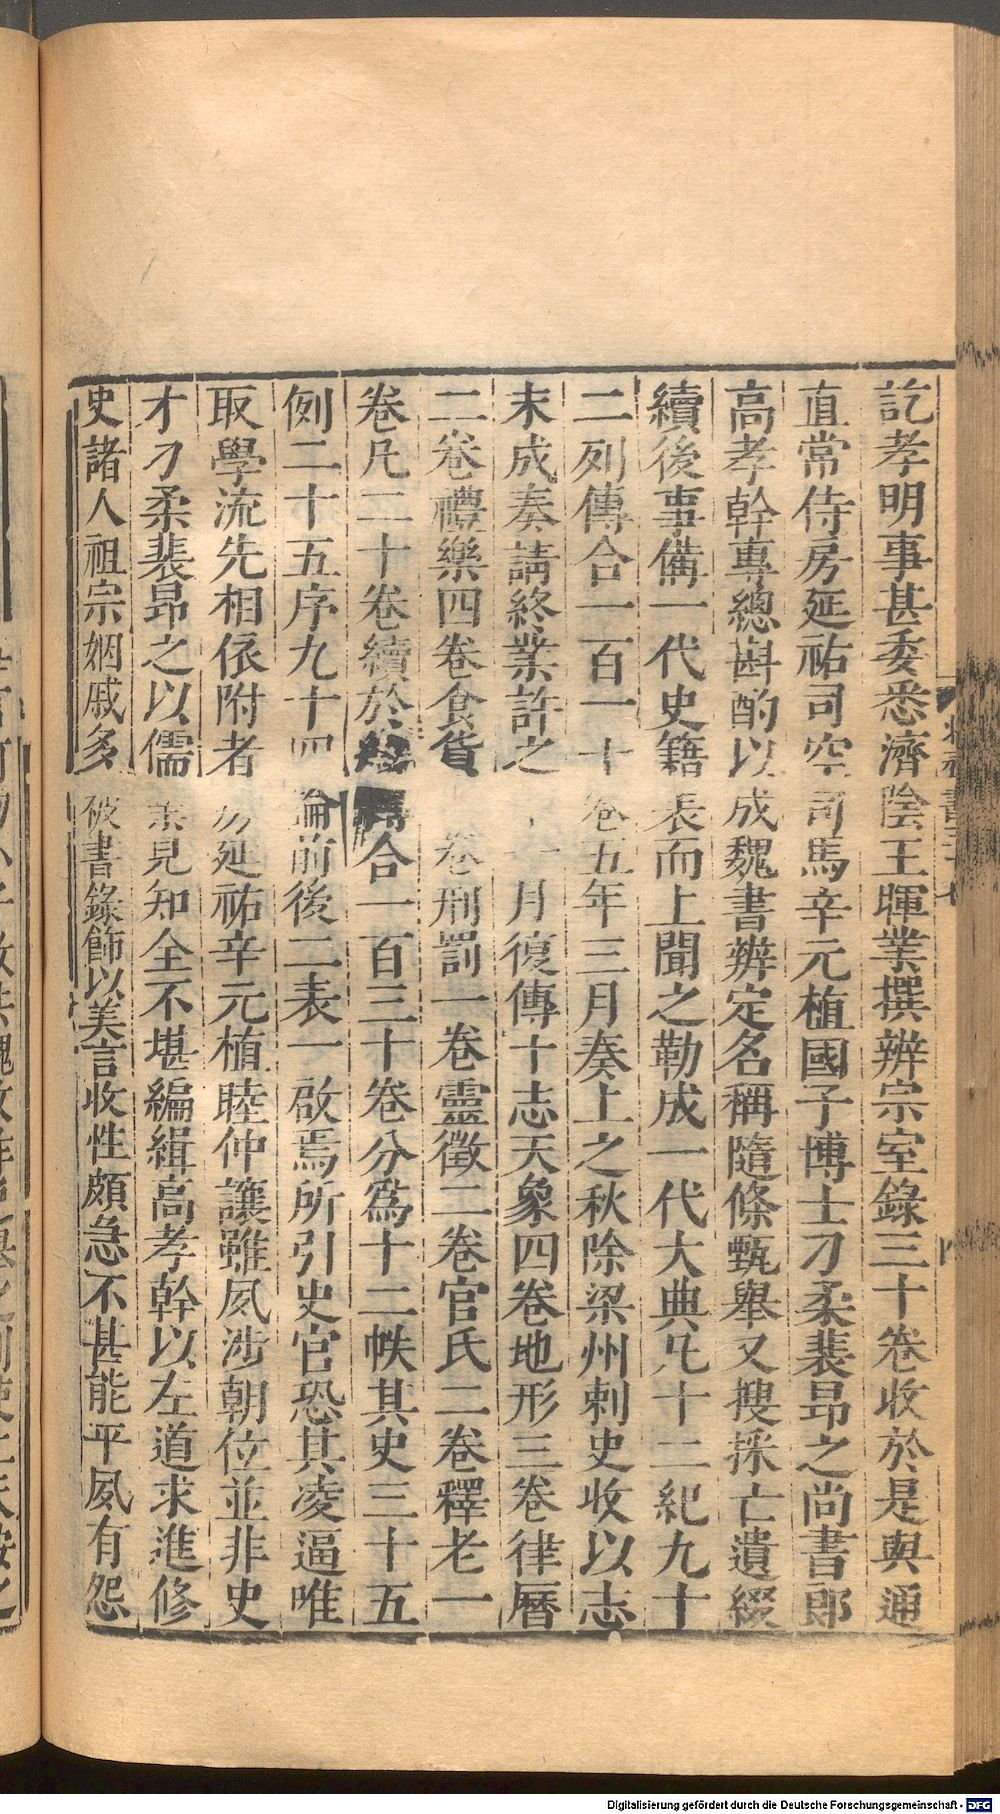 訖孝明事甚委悉濟陰王暉業撰辨宗室錄三十卷收於是與通
直常侍房延祐司空司馬辛元植國子博士刁柔裴昂之尚書郎
高孝幹專總斟酌以成魏書辨定名稱隨條甄舉又搜採亡遺綴
續後事備一代史籍表而上聞之勒成一代大典凡十二紀九十
二列傳合一百一十卷五年三月奏上之秋除梁州刺史收以志
未成奏請終業許之十一月復傳十志天象四卷地形三卷律曆
二卷禮樂四卷食貨一卷刑罰一卷靈徵二卷官氏二卷釋老一
卷凡二十卷續於紀傳合一百三十卷分爲十二帙其史三十五
例二十五序九十四論前後二表一啟焉所引史官恐其凌逼唯
取學流先相依附者房延祐辛元植眭仲讓雖夙涉朝位並非史
才刁柔裴昂之以儒業見知全不堪編緝高孝幹以左道求進修
史諸人祖宗姻戚多被書錄飾以美言收性頗急不甚能平夙有怨
Digitalisierung gefördert durch die Deutsche Forschungsgemeinschaft - DFG